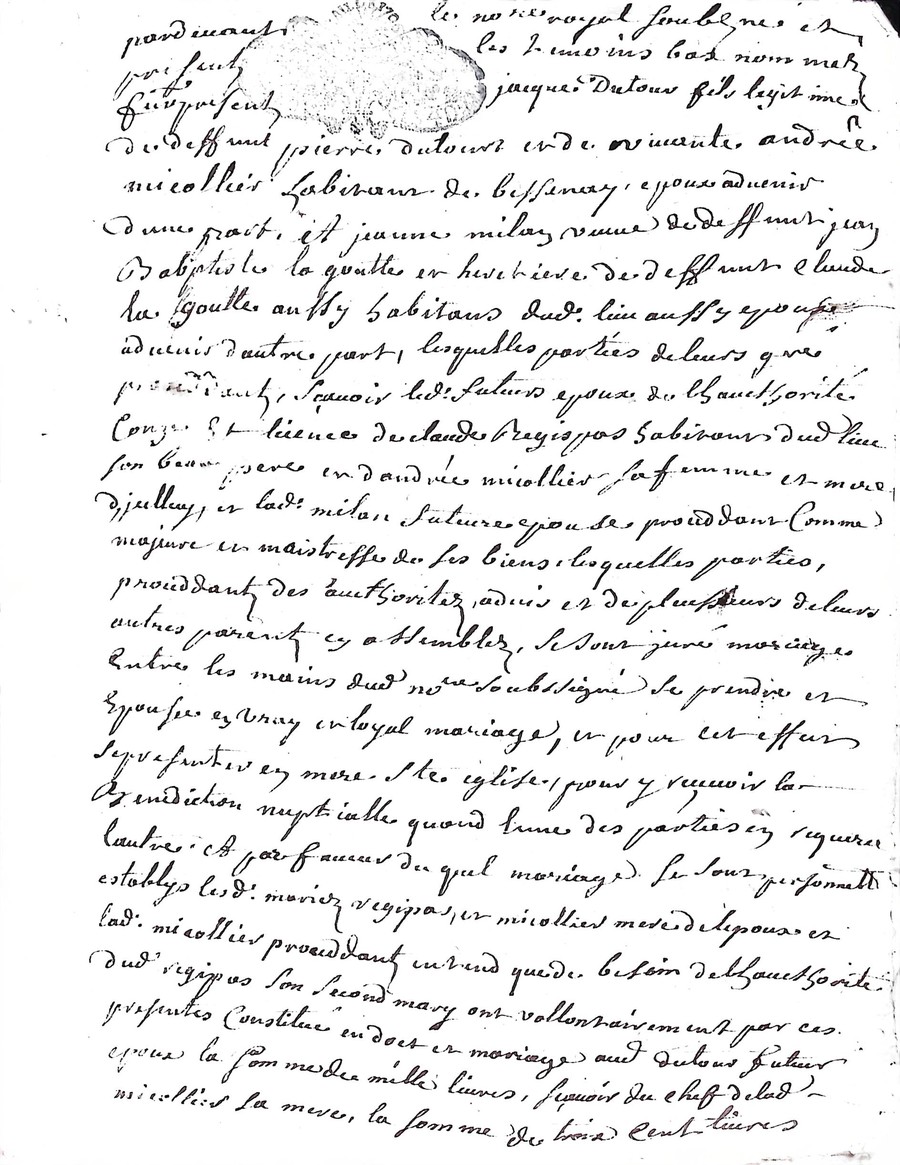 pardevant le no.re royal soubzne et
present les temoins bas nommez
fut present jacque Dutour fils legitime
de deffunt pierre dutour et de vivante andrée
micollier habitant de bessenay, epoux advenir
d'une part, et jeanne milan veuve de deffunt jean
Babptiste la goutte et heretiere de deffunt Claude
la goutte aussy habitans dud. lieu aussy epouse
advenir d'autre part, lesquelles parties de leurs gré
proceddant, sçavoir led. futurs epoux de lhauthorité
Conge Et licence de claude Regipas habitant dud lieu
son beau pere et d'andrée micollier sa femme et mere
d'jcelluy, et lad. milan future epouse proceddant Comme
majeure et maistresse de ses biens, lesquelles parties,
proceddantz des authoritez, advis et de plusieurs de leurs
autres parentz en assemblez, se sont juré mariage
Entre les mains dud no.re soubssigné se prendre et
Epouse en vray et loyal mariage, et pour cet effect
se presenter en mere Ste eglise, pour y reçevoir la
Benediction nuptialle quand l'une des parties en requerra
lautre. Et par faveur du quel mariage se sont personnell
establys lesd. mariez regipas, et micollier mere de lepoux et
lad. micollier proceddant entend que de besoin de lhauthorité
dud regipas son second mary ont vollontairement par ces
presentes Constitué en doct et mariage aud dutour futur
epoux la somme de mille livres, sçavoir du chef de lad
micollier sa mere, la somme de trois cent livres